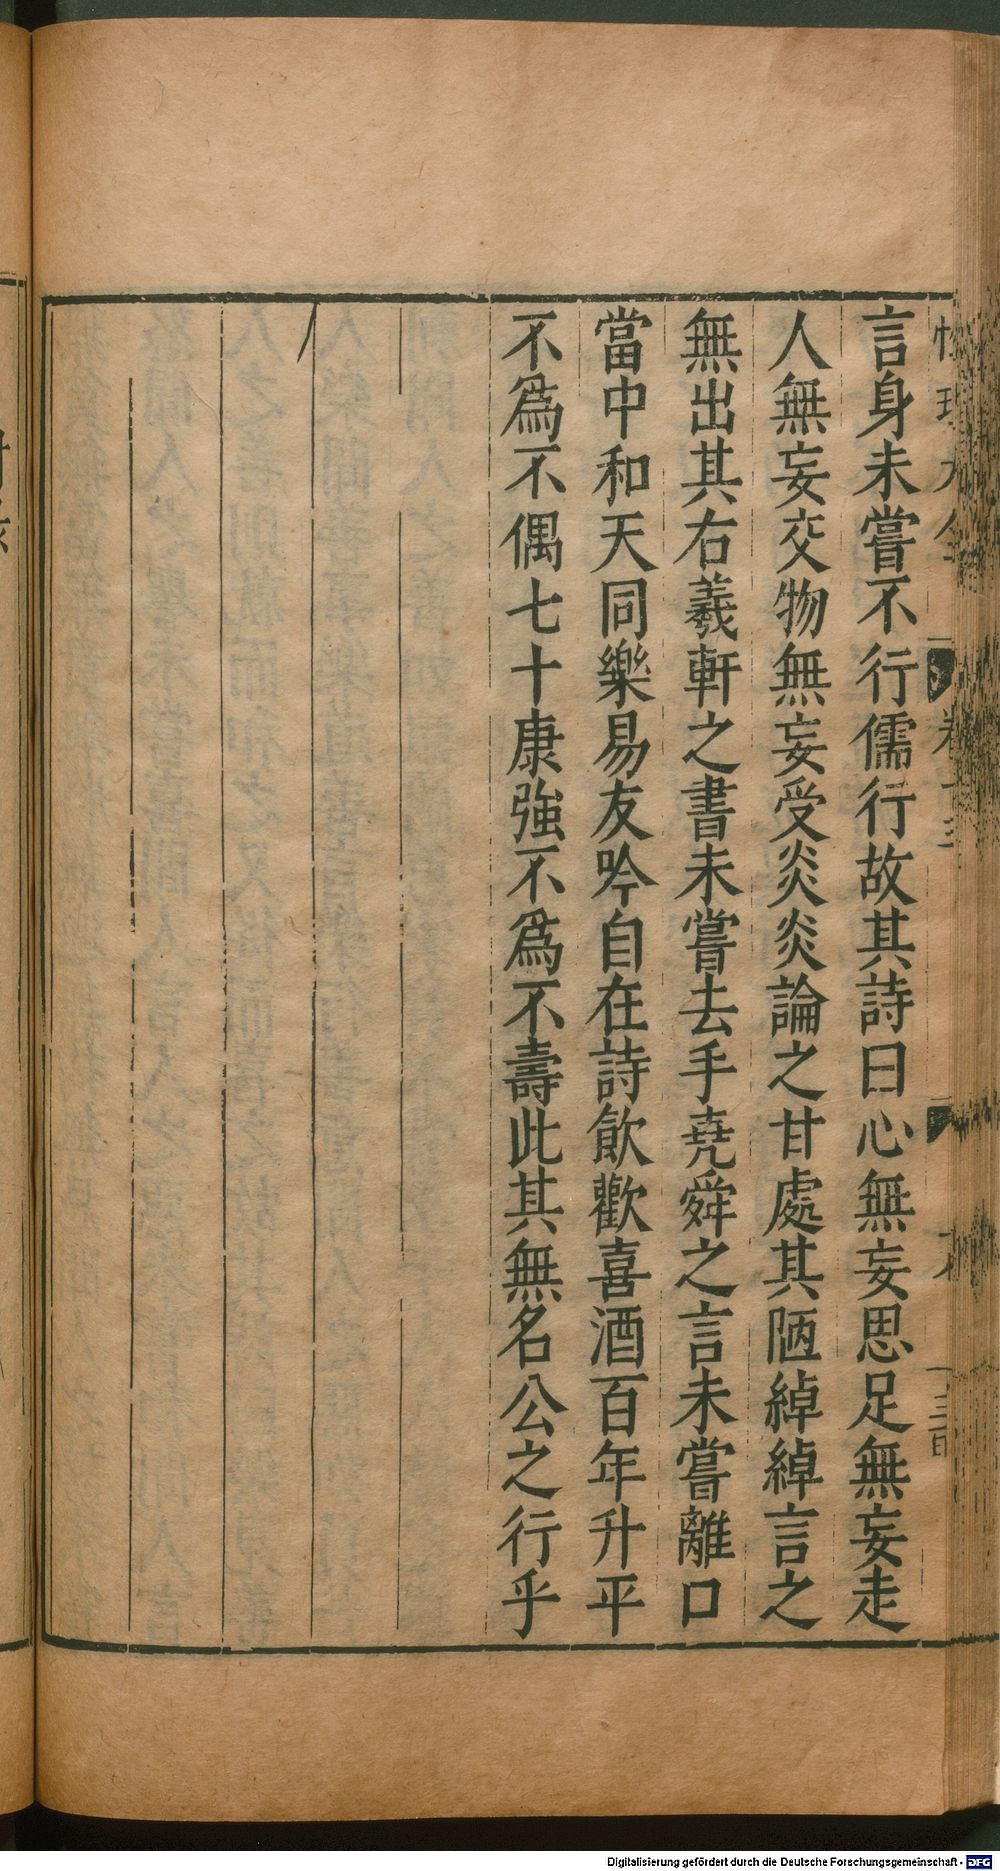 言身未嘗不行儒行故其詩曰心無妄思足無妄走
人無妄交物無妄受炎炎論之甘處其陋綽綽言之
無出其右羲軒之書未嘗去手堯舜之言未嘗離口
當中和天同樂易友吟自在詩飲歡喜酒百年升平
不爲不偶七十康強不爲不壽此其無名公之行乎
Digitalisierung gefördert durch die Deutsche Forschungsgemeinschaft - DFG